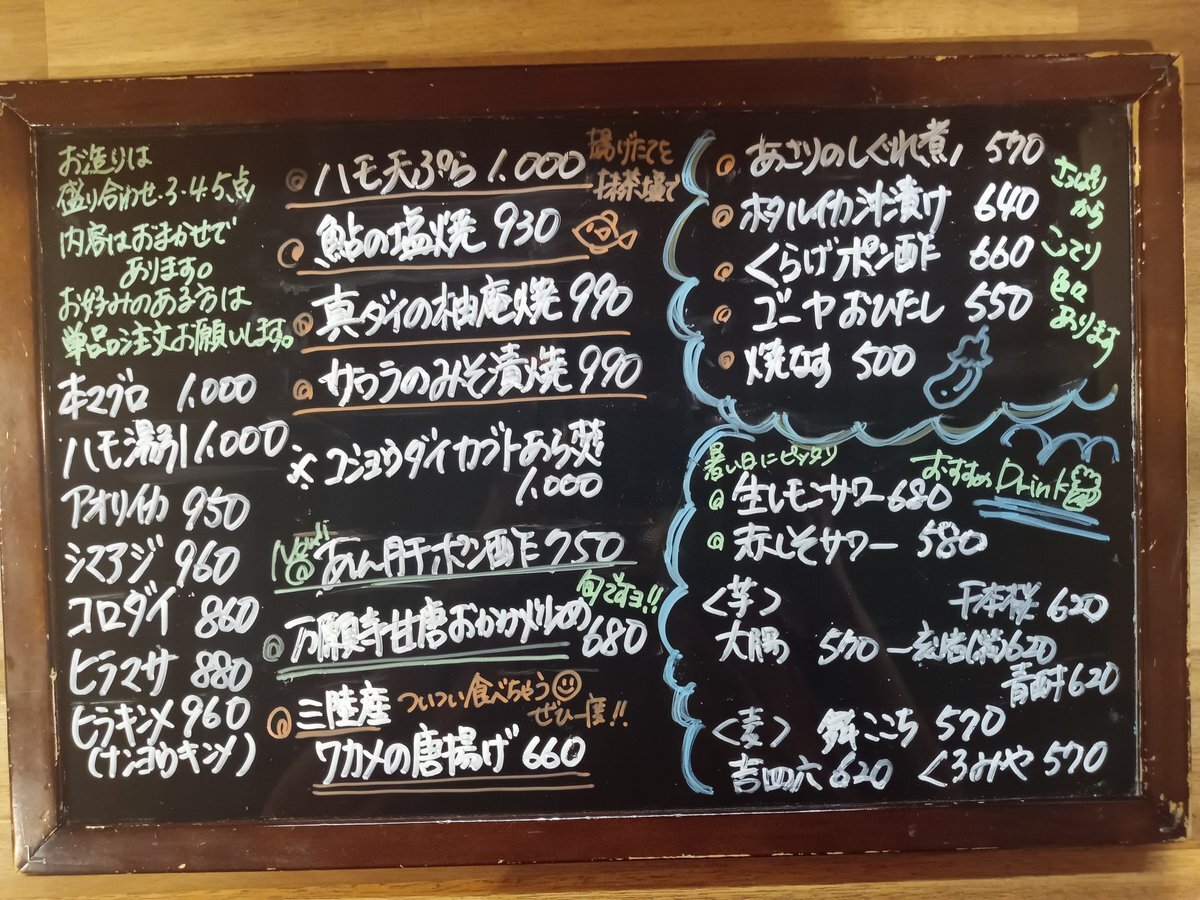 お造りは
盛り合わせ・3・4・5点
内容はおまかせで
あります。
お好みのある方は
単品ご注文お願いします。
本マグロ 1.000
ハモ湯引 1.000
アオリイカ 950
シマアジ 960
コロダイ 860
ヒラマサ 880
ヒラキンメ 960
(ナンヨウキンメ)
ハモ天ぷら 1.000
揚げたてを
抹茶塩で
鮎の塩焼 930
真ダイの柚庵焼 990
サワラのみそ漬焼 990
※コショウダイカブトあら焚
1.000
New!!
あん肝ポン酢 750
旬ですヨ!!
万願寺甘唐おかか炒め 680
三陸産
ついつい食べちゃう
ぜひ一度!!
ワカメの唐揚げ 660
あさりのしぐれ煮 570
ホタルイカ沖漬け 640
くらげポン酢 660
ゴーヤおひたし 550
焼なす 500
さっぱり
から
こってり
色々
あります
暑い日にピッタリ
おすすめ Drink
生レモンサワー 680
赤しそサワー 580
<芋> 千本桜 620
大隅 570 一刻者 620
青酎 620
<麦> 餅ここち 570
吉四六 620 くろみや 570